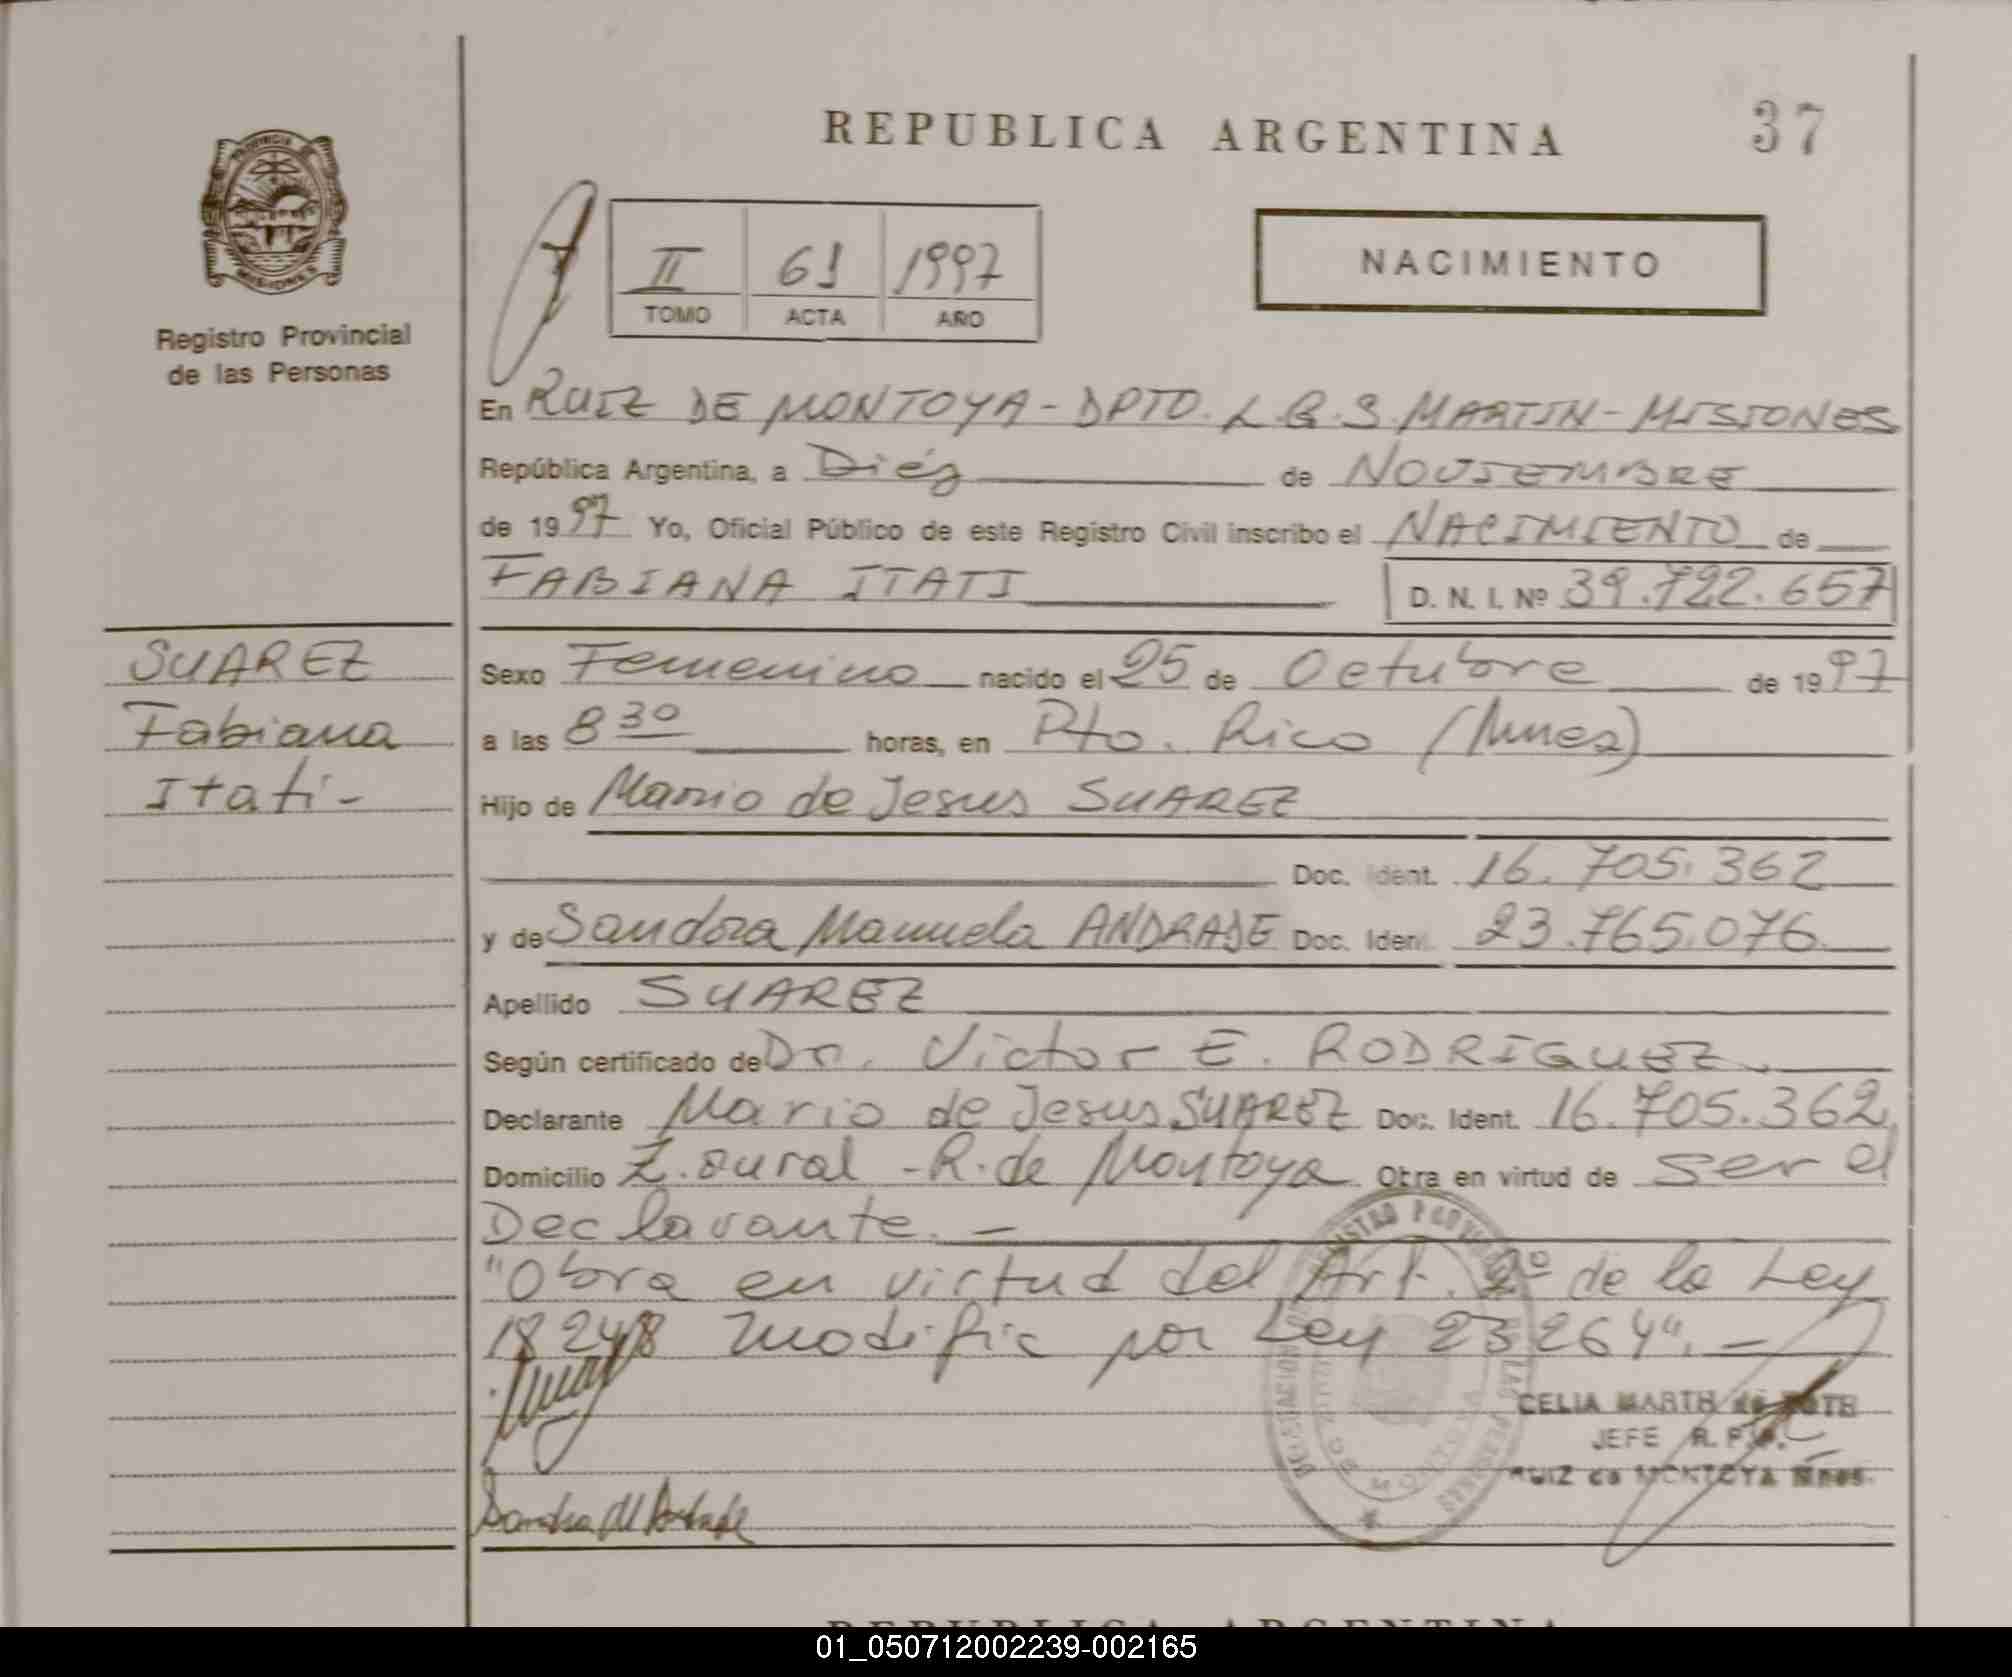 REPUBLICA ARGENTINA
37
PROVINCIA
MISIONES
Registro Provincial
de las Personas
II 61 1997
TOMO ACTA AÑO
NACIMIENTO
En RUIZ DE MONTOYA - DPTO. L.G.S. MARTIN - MISIONES
República Argentina, a Diéz de NOVIEMBRE
de 1997 Yo, Oficial Público de este Registro Civil inscribo el NACIMIENTO de
FABIANA ITATI D. N. I. Nº 39.722.657
SUAREZ
Fabiana
Itati-
Sexo Femenino nacido el 25 de Octubre de 1997
a las 8 30 horas, en Pto. Rico (Mnes)
Hijo de Mario de Jesus SUAREZ
Doc. Ident. 16.705.362
y de Sandra Manuela ANDRADE Doc. Ident. 23.765.076
Apellido SUAREZ
Según certificado de Dr. Victor E. RODRIGUEZ.
Declarante Mario de Jesus SUAREZ Doc. Ident. 16.705.362
Domicilio Z. rural - R. de Montoya Obra en virtud de ser el
Declarante. -
"Obra en virtud del Art. 2º de la Ley
18248 modific por Ley 23264". -
CELIA MARTH de ROTH
JEFE R. P. P.
RUIZ de MONTOYA Mnes.
Sandra M Andrade
REPUBLICA ARGENTINA
01_050712002239-002165